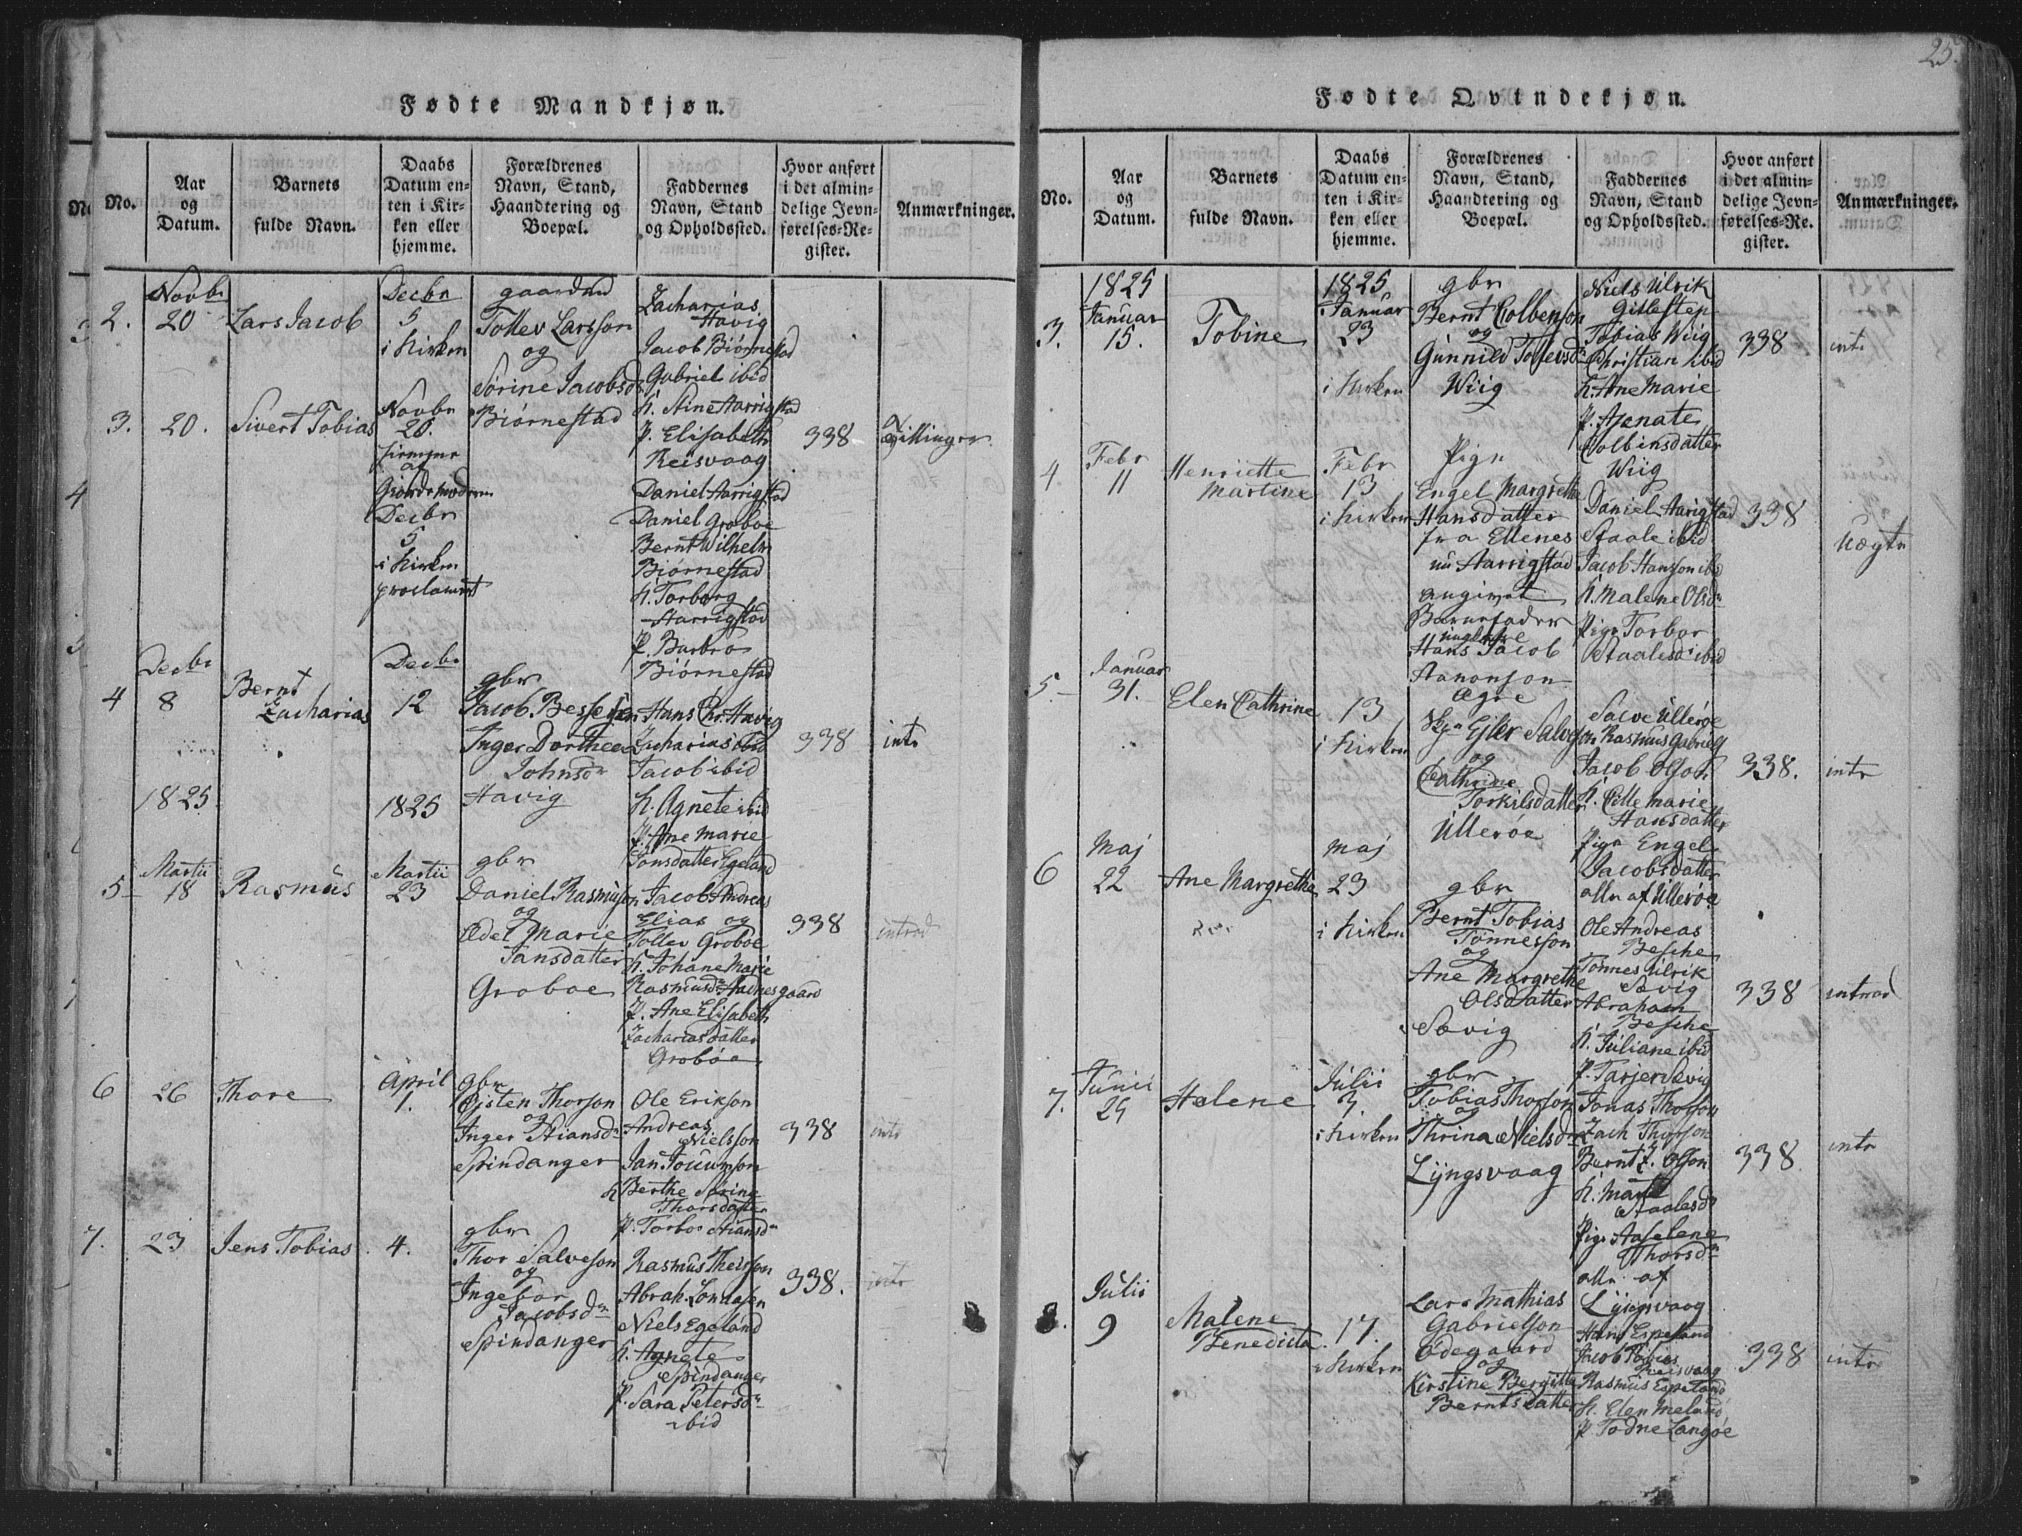 25.
Fødte Mandkjøn.
No.
Aar
og
Datum.
Barnets
fulde Navn.
Daabs
Datum en-
ten i Kir-
ken eller
hjemme.
Forældrenes
Navn, Stand,
Haandtering og
Boepæl.
Faddernes
Navn, Stand
og Opholdssted.
Hvor anført
i det almin-
delige Jevn-
førelses-Re-
gister.
Anmærkninger.
2.
Novbr
20
Lars Jacob
Decbr
5
i Kirken
gaardmd
Tollev Larsson
og
Sørine Jacobsdr
Biørnestad
Zacharias
Havig
Jacob Biørnestad
Gabriel ibid
K. Stine Aarrigstad
P. Elisabeth
Reisvaag
3.
20.
Sivert Tobias
Novbr
20.
hjemme
af
Giordemodren
Decbr
5
i Kirken
proclameret
Daniel Aarrigstad
Daniel Groboe
Bernt Wilhelm
Biørnestad
K. Torborg
Aarrigstad
P. Barbro
Biørnestad
338
Tvillinger
4
Decbr
8
Bernt
Zacharias
Decbr
12
gbr
Jacob Bessesen
Inger Dorthea
Johnsdr
Havig
Hans Chr. Havig
Zacharias ibid
Jacob ibid
K. Agnete ibid
P. Ane Marie
Tonsdatter Egeland
338
intr
1825
1825
5
Martii
18
Rasmus
Martii
23
gbr
Daniel Rasmuson
og
Edel Marie
Jansdatter
Groboe
Jacob Andreas
Elias og
Tollev Groboe
K. Johane Marie
Rasmusdr Aadnesgaard
P. Ane Elisabeth
Zachariasdatter
Grobøe
338
introd
6
26
Thore
April
1.
gbr
Ojsten Thorson
og
Inger Stiansdr
Spindanger
Ole Erikson
Andreas
Nielsson
Jan Joumson
K Berthe Sørine
Thorsdatter
P. Torbor Stiansdr
338
intr
7.
23
Jens Tobias
4.
gbr
Thor Salveson
og
Ingebor
Jacobsdr
Spindanger
Rasmus Theisson
Abrah. Londasen
Niels Egeland
K. Agnete
Spindanger
P. Sara Petersdr
ibid
338.
intr
Fødte Qvindekjøn.
No.
Aar
og
Datum.
Barnets
fulde Navn.
Daabs
Datum en-
ten i Kir-
ken eller
hjemme.
Forældrenes
Navn, Stand,
Haandtering og
Boepæl.
Faddernes
Navn, Stand
og Opholdssted.
Hvor anført
i det almin-
delige Jevn-
førelses-Re-
gister.
Anmærkninger.
3.
1825
Januar
15.
Tobine
1825
Januar
23
i Kirken
gbr
Bernt Colbenson
og
Gunnild Tollevsdr
Wiig
Niels Ulrik
Gitlestep
Tobias Wiig
Christian ibid
K. Ane Marie
P. Asenate
Colbensdatter
Wiig
338
intr
4
Febr
11
Henriette
Martine
Febr
13
i Kirken
Pige
Engel Margrethe
Hansdatter
fra Ellenes
nu Aarrigstad
angivet
Barnefader
ungkarl
Hans Jacob
Aanonson
Ægre
Daniel Aarigstad
Staale ibid
Jacob Hansson ibid
K. Malene Olsdr
Pige Torbor
Staalesdr ibid
338
Uægte
5
Januar
31.
Elen Cathrine
13
i Kirken
Ejler Salveson
og
Cathrine
Torkilsdatter
Ullerøe
Salve Ullerøe
Rasmus Gabriels
Jacob Olson
K. Cille Marie
Hansdatter
Pige Engel
Jacobsdatter
alle af Ullerøe
338.
intr
6
Maj
22
Ane Margrethe
Maj
23
i Kirken
gbr
Bernt Tobias
Tønnesson
og
Ane Margrethe
Olsdatter
Sævig
Ole Andreas
Besche
Tønnes Ulrik
Sævig
Abraham
Besche
K. Juliane ibid
P. Tarjer Sævig
338
introd
7.
Junii
25
Helene
Julii
3.
i Kirken
gbr
Tobias Thorson
og
Thrina Nielsdr
Lyngsvaag
Jonas Thorson
Zach Thorson
Bernt J. Olson
K. Marte
Staalesdr
Pige Aaselene
Thorsdr
alle af
Lyngsvaag
338.
intr
8.
Julii
9
Malene
Benedicta
17.
i Kirken
Lars Mathias
Gabrielson
Ødegaard
og
Kirstine Bergitte
Berntsdatter
Hans Espeland
Jacob Tobias
Reisvaag
Rasmus Espeland
K. Elen Meland
P. Todne Langøe
338
intr